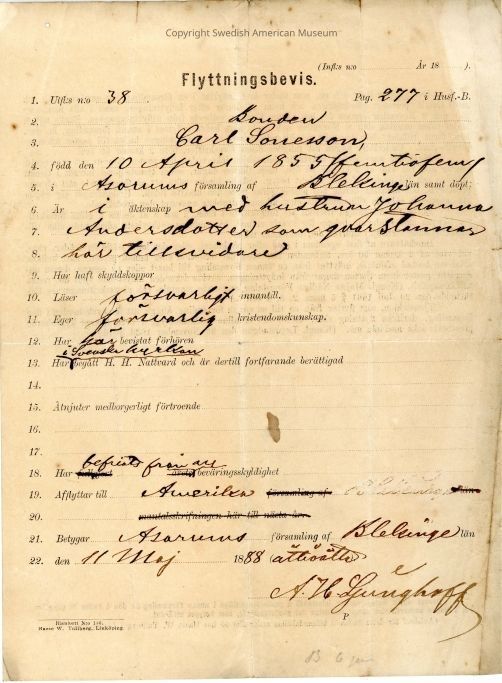 Copyright Swedish American Museum
(Infl:s n:o År 18 ).
Flyttningsbevis.
1. Utfl:s n:o 38. Pag. 277 i Husf.-B.
2. Bonden
3. Carl Sonesson,
4. född den 10 April 1855 (femtiofem)
5. i Asarums församling af Blekinge län samt döpt;
6. Är i äktenskap med hustrun Johanna
7. Andersdotter som qvarstannar
8. här tillsvidare
9. Har haft skyddskoppor
10. Läser försvarligt innantill.
11. Eger försvarlig kristendomskunskap.
12. Har här bevistat förhören
i Svenska kyrkan
13. Har begått H. H. Nattvard och är dertill fortfarande berättigad
14.
15. Åtnjuter medborgerligt förtroende
16.
17.
befriats från all
18. Har fullgjort årets beväringsskyldighet
19. Afflyttar till Amerika församling af län
20. mantalsskrifningen här till nästa år.
21. Betygar Asarums församling af Blekinge län
22. den 11 Maj 1888 (åttioåtta)
A. H. Ljunghoff
P
Blankett N:o 136.